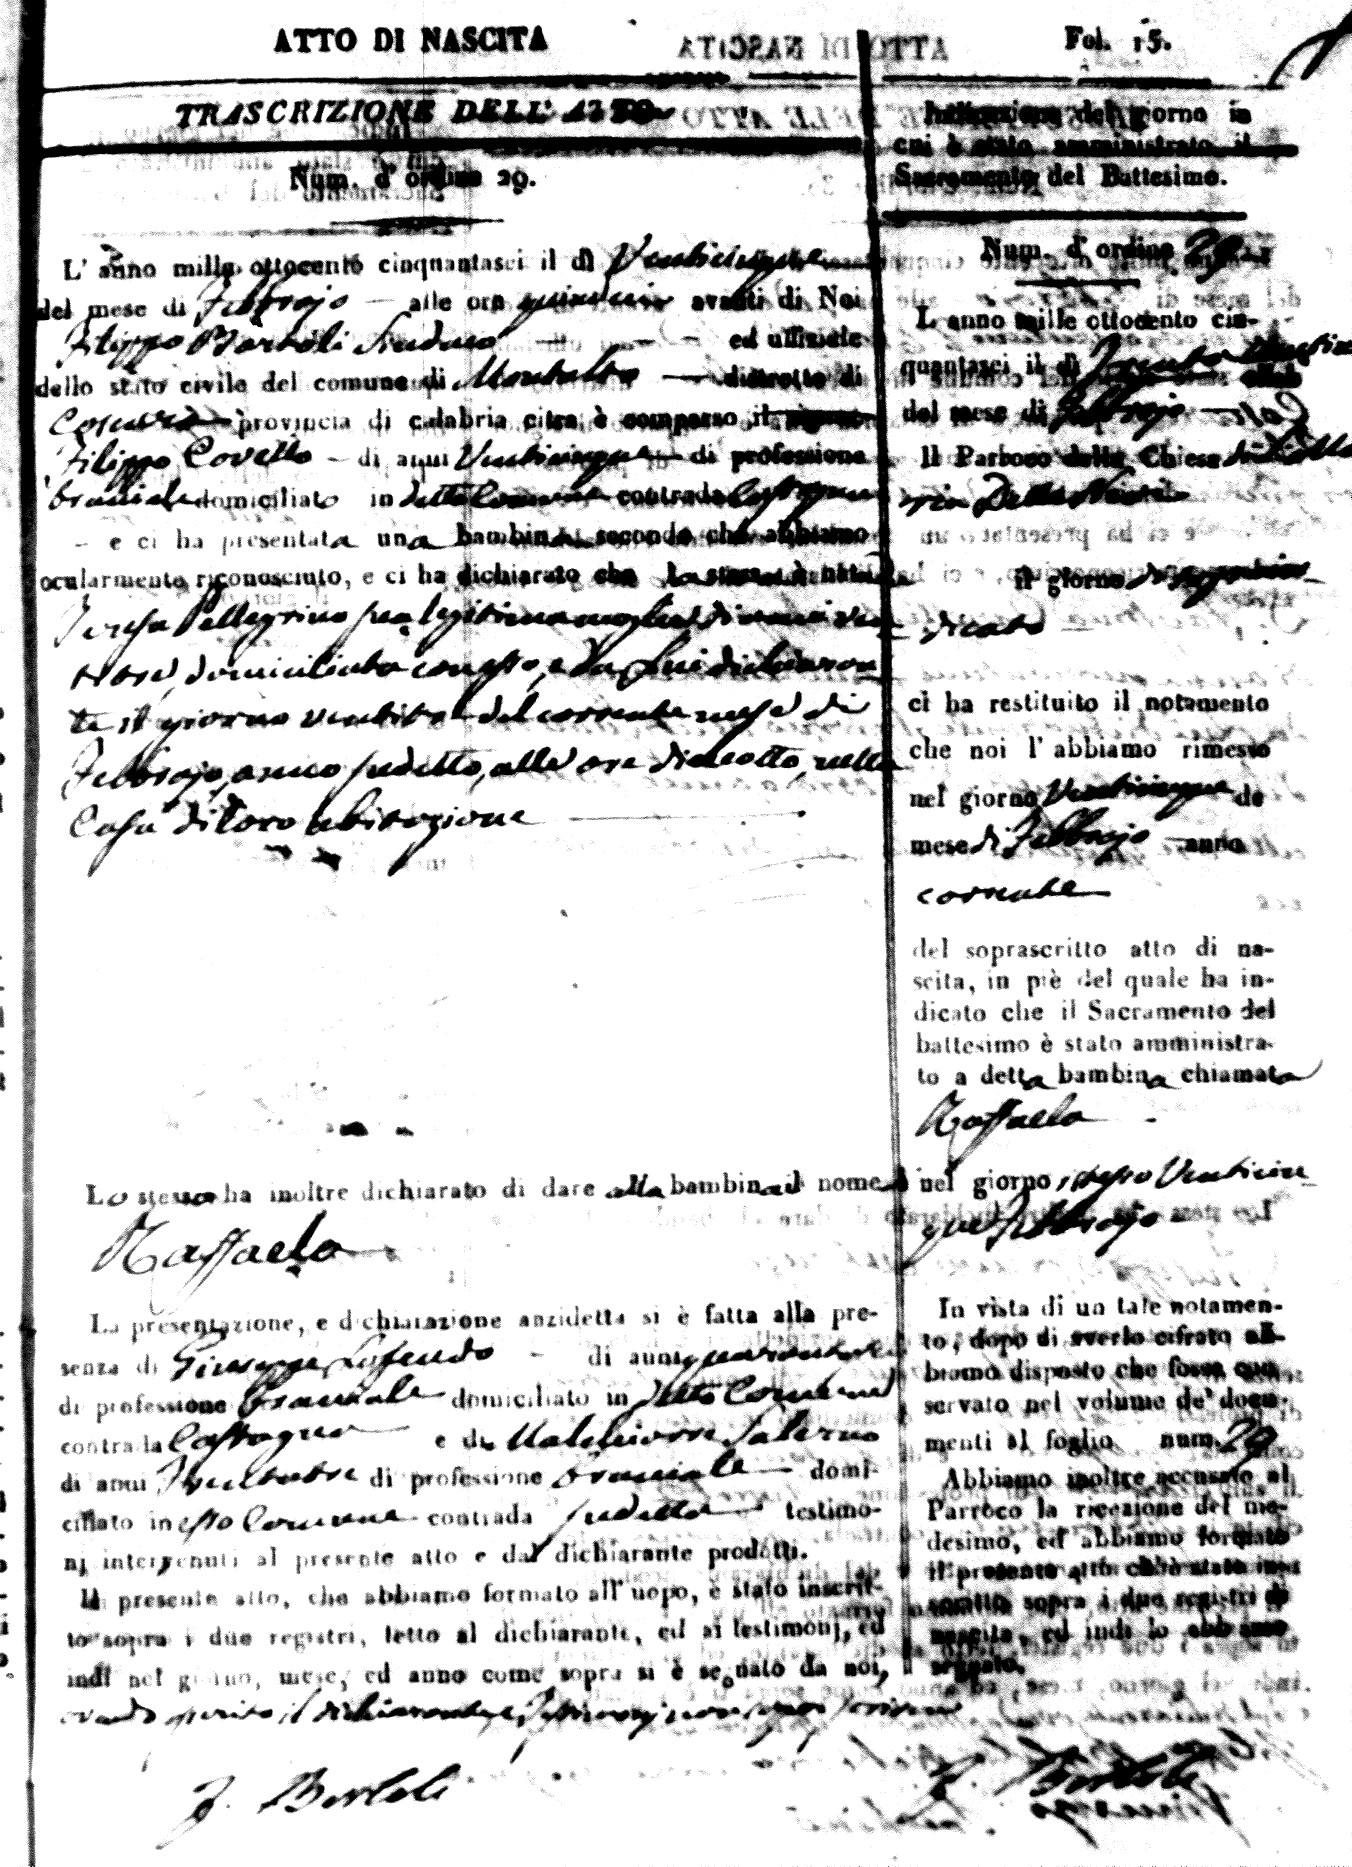 ATTO DI NASCITA
Fol. 15.
TRASCRIZIONE DELL' ATTO
Num. d' ordine 29.
L' anno mille ottocento cinquantasei il dì Venticinque
del mese di Febbrajo — alle ore quindici avanti di Noi
Filippo Bartoli Sindaco — ed uffiziale
dello stato civile del comune di Montalto — distretto di
Cosenza provincia di calabria citra è comparso il
Filippo Covello — di anni Venticinque di professione
bracciale domiciliato in detto Comune contrada Castagna
– e ci ha presentata una bambina secondo che abbiamo
ocularmente riconosciuto, e ci ha dichiarato che la stessa è nata da
Teresa Pellegrino sua legittima moglie di anni
domiciliata con esso, e da Lui dichiaran
te il giorno ventitre del corrente mese di
Febbrajo, anno sudetto, alle ore dieciotto, nella
Casa di loro abitazione
Lo stesso ha inoltre dichiarato di dare alla bambina il nome di
Raffaela
La presentazione, e dichiarazione anzidetta si è fatta alla pre-
senza di Giuseppe di anni quaranta
di professione bracciale domiciliato in detto Comune
contrada Castagna e di Malchiorre Salerno
di anni di professione bracciale domi-
ciliato in esso Comune contrada sudetta testimo-
nj intervenuti al presente atto e dal dichiarante prodotti.
Il presente atto, che abbiamo formato all' uopo, è stato inscrit-
to sopra i due registri, letto al dichiarante, ed ai testimonj, ed
indi nel giorno, mese, ed anno come sopra si è segnato da noi,
avendo asserito il dichiarante, e Testimonj non saper scrivere
F. Bartoli
Indicazione del giorno in
cui è stato amministrato il
Sacramento del Battesimo.
Num. d' ordine 29
L' anno mille ottocento cin-
quantasei il dì
del mese di Febbrajo
Il Parroco della Chiesa di
ria Della Neve
il giorno
dicato
ci ha restituito il notamento
che noi l' abbiamo rimesso
nel giorno Venticinque de
mese di Febbrajo anno
corrente
del soprascritto atto di na-
scita, in piè del quale ha in-
dicato che il Sacramento del
battesimo è stato amministra-
to a detta bambina chiamata
Raffaela
nel giorno stesso Venticin
que Febbrajo
In vista di un tale notamen-
to, dopo di averlo cifrato ab-
biamo disposto che fosse con-
servato nel volume de' docu-
menti al foglio num. 29
Abbiamo inoltre accusato al
Parroco la ricezione del me-
desimo, ed abbiamo formato
il presente atto ch'è stato ins-
critto sopra i due registri di
nascita, ed indi lo abbiamo
segnato.
F. Bartoli